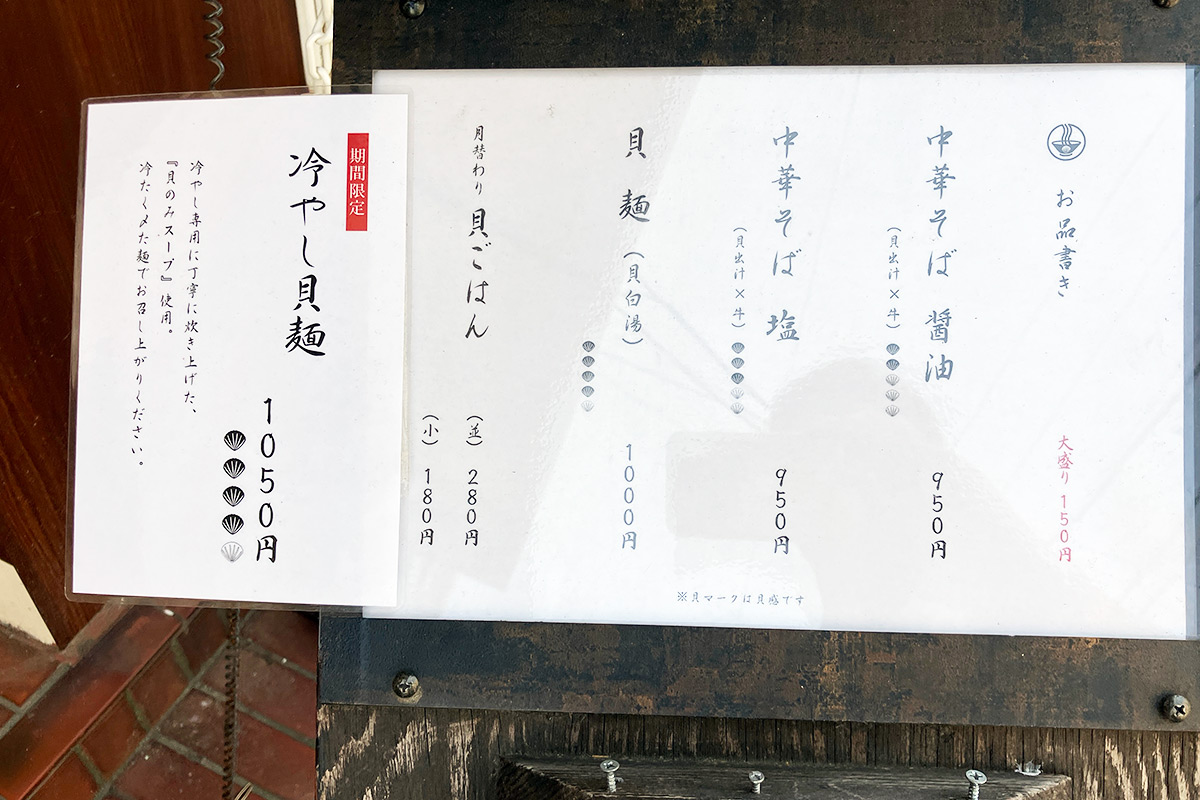 お品書き
大盛り 150円
中華そば 醤油
(貝出汁×牛)
950円
中華そば 塩
(貝出汁×牛)
950円
貝麺(貝白湯)
1000円
月替わり 貝ごはん
(並) 280円
(小) 180円
※貝マークは貝感です
期間限定
冷やし貝麺
1050円
冷やし専用に丁寧に炊き上げた、
『貝のみスープ』使用。
冷たく〆た麺でお召し上がりください。